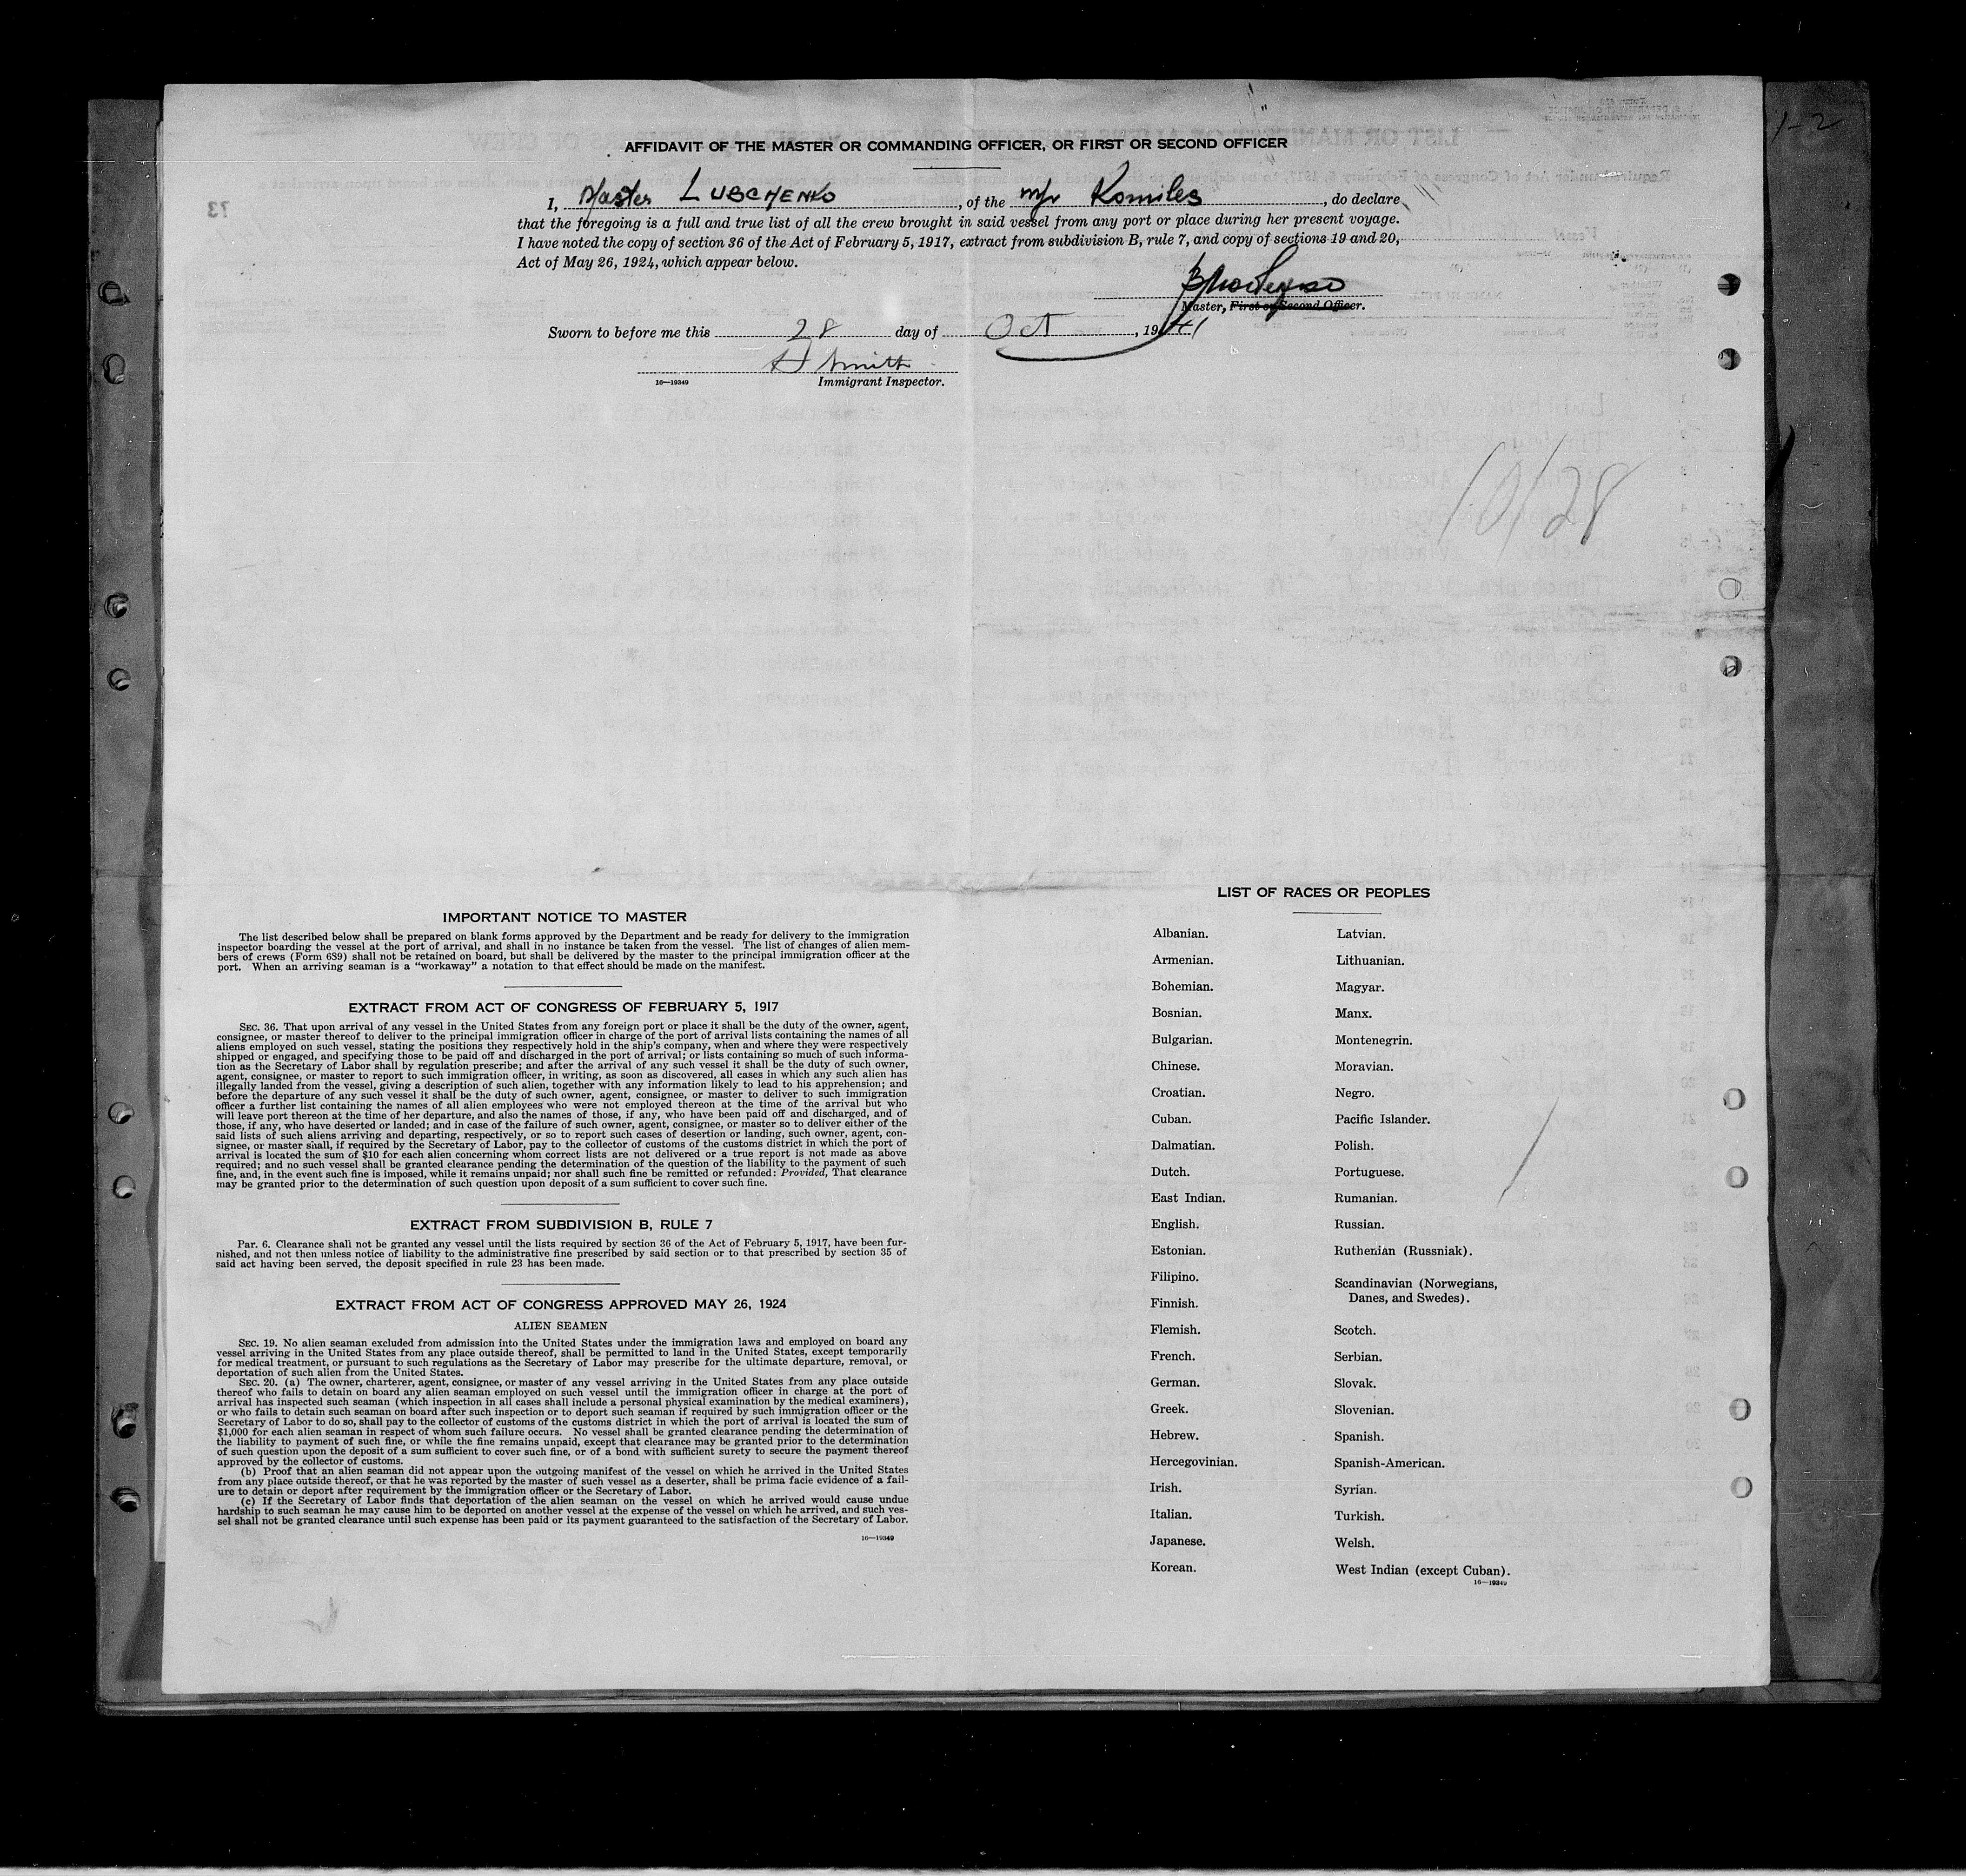 1-2
AFFIDAVIT OF THE MASTER OR COMMANDING OFFICER, OR FIRST OR SECOND OFFICER
I, Master LUBCHENKO, of the m/v Komiles, do declare
that the foregoing is a full and true list of all the crew brought in said vessel from any port or place during her present voyage.
I have noted the copy of section 36 of the Act of February 5, 1917, extract from subdivision B, rule 7, and copy of sections 19 and 20,
Act of May 26, 1924, which appear below.
Master, First or Second Officer.
Sworn to before me this 28 day of Oct, 1941
Smith
16—19349 Immigrant Inspector.
10/28
IMPORTANT NOTICE TO MASTER
The list described below shall be prepared on blank forms approved by the Department and be ready for delivery to the immigration
inspector boarding the vessel at the port of arrival, and shall in no instance be taken from the vessel. The list of changes of alien mem-
bers of crews (Form 689) shall not be retained on board, but shall be delivered by the master to the principal immigration officer at the
port. When an arriving seaman is a “workaway” a notation to that effect should be made on the manifest.
EXTRACT FROM ACT OF CONGRESS OF FEBRUARY 5, 1917
SEC. 36. That upon arrival of any vessel in the United States from any foreign port or place it shall be the duty of the owner, agent,
consignee, or master thereof to deliver to the principal immigration officer in charge of the port of arrival lists containing the names of all
aliens employed on such vessel, stating the positions they respectively hold in the ship's company, when and where they were respectively
shipped or engaged, and specifying those to be paid off and discharged in the port of arrival; or lists containing so much of such informa-
tion as the Secretary of Labor shall by regulation prescribe; and after the arrival of any such vessel it shall be the duty of such owner,
agent, consignee, or master to report to such immigration officer, in writing, as soon as discovered, all cases in which any such alien has
illegally landed from the vessel, giving a description of such alien, together with any information likely to lead to his apprehension; and
before the departure of any such vessel it shall be the duty of such owner, agent, consignee, or master to deliver to such immigration
officer a further list containing the names of all alien employees who were not employed thereon at the time of the arrival but who
will leave port thereon at the time of her departure, and also the names of those, if any, who have been paid off and discharged, and of
those, if any, who have deserted or landed; and in case of the failure of such owner, agent, consignee, or master so to deliver either of the
said lists of such aliens arriving and departing, respectively, or so to report such cases of desertion or landing, such owner, agent, con-
signee, or master shall, if required by the Secretary of Labor, pay to the collector of customs of the customs district in which the port of
arrival is located the sum of $10 for each alien concerning whom correct lists are not delivered or a true report is not made as above
required; and no such vessel shall be granted clearance pending the determination of the question of the liability to the payment of such
fine, and, in the event such fine is imposed, while it remains unpaid; nor shall such fine be remitted or refunded: Provided, That clearance
may be granted prior to the determination of such question upon deposit of a sum sufficient to cover such fine.
EXTRACT FROM SUBDIVISION B, RULE 7
Par. 6. Clearance shall not be granted any vessel until the lists required by section 36 of the Act of February 5, 1917, have been fur-
nished, and not then unless notice of liability to the administrative fine prescribed by said section or to that prescribed by section 35 of
said act having been served, the deposit specified in rule 23 has been made.
EXTRACT FROM ACT OF CONGRESS APPROVED MAY 26, 1924
ALIEN SEAMEN
SEC. 19. No alien seaman excluded from admission into the United States under the immigration laws and employed on board any
vessel arriving in the United States from any place outside thereof, shall be permitted to land in the United States, except temporarily
for medical treatment, or pursuant to such regulations as the Secretary of Labor may prescribe for the ultimate departure, removal, or
deportation of such alien from the United States.
SEC. 20. (a) The owner, charterer, agent, consignee, or master of any vessel arriving in the United States from any place outside
thereof who fails to detain on board any alien seaman employed on such vessel until the immigration officer in charge at the port of
arrival has inspected such seaman (which inspection in all cases shall include a personal physical examination by the medical examiners),
or who fails to detain such seaman on board after such inspection or to deport such seaman if required by such immigration officer or the
Secretary of Labor to do so, shall pay to the collector of customs of the customs district in which the port of arrival is located the sum of
$1,000 for each alien seaman in respect of whom such failure occurs. No vessel shall be granted clearance pending the determination of
the liability to payment of such fine, or while the fine remains unpaid, except that clearance may be granted prior to the determination
of such question upon the deposit of a sum sufficient to cover such fine, or of a bond with sufficient surety to secure the payment thereof
approved by the collector of customs.
(b) Proof that an alien seaman did not appear upon the outgoing manifest of the vessel on which he arrived in the United States
from any place outside thereof, or that he was reported by the master of such vessel as a deserter, shall be prima facie evidence of a fail-
ure to detain or deport after requirement by the immigration officer or the Secretary of Labor.
(c) If the Secretary of Labor finds that deportation of the alien seaman on the vessel on which he arrived would cause undue
hardship to such seaman he may cause him to be deported on another vessel at the expense of the vessel on which he arrived, and such ves-
sel shall not be granted clearance until such expense has been paid or its payment guaranteed to the satisfaction of the Secretary of Labor.
16—19349
LIST OF RACES OR PEOPLES
Albanian.
Armenian.
Bohemian.
Bosnian.
Bulgarian.
Chinese.
Croatian.
Cuban.
Dalmatian.
Dutch.
East Indian.
English.
Estonian.
Filipino.
Finnish.
Flemish.
French.
German.
Greek.
Hebrew.
Hercegovinian.
Irish.
Italian.
Japanese.
Korean.
Latvian.
Lithuanian.
Magyar.
Manx.
Montenegrin.
Moravian.
Negro.
Pacific Islander.
Polish.
Portuguese.
Rumanian.
Russian.
Ruthenian (Russniak).
Scandinavian (Norwegians,
Danes, and Swedes).
Scotch.
Serbian.
Slovak.
Slovenian.
Spanish.
Spanish-American.
Syrian.
Turkish.
Welsh.
West Indian (except Cuban).
16—19349